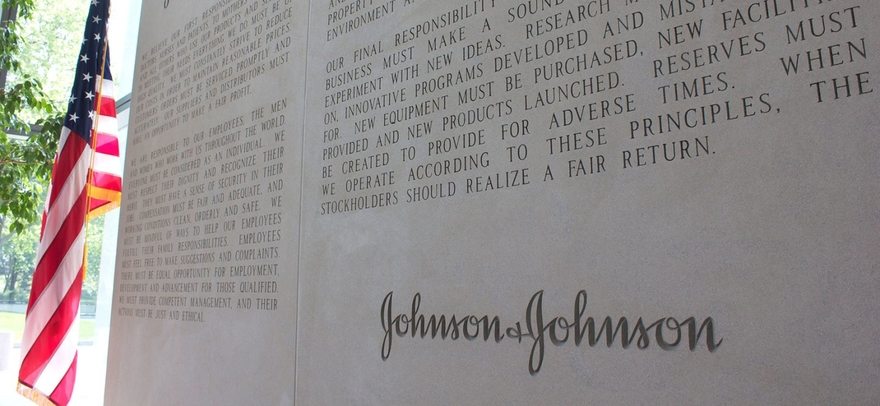 WE BELIEVE OUR FIRST
PATIENTS TO MOTHERS AND
PRODUCTS AND
MUST BE OF
STRIVE TO REDUCE
MAINTAIN REASONABLE PRICES.
ORDERS MUST BE SERVICED PROMPTLY AND
ACCURATELY. OUR SUPPLIERS AND DISTRIBUTORS MUST
HAVE AN OPPORTUNITY TO MAKE A FAIR PROFIT.
WE ARE RESPONSIBLE TO OUR EMPLOYEES, THE MEN
AND WOMEN WHO WORK WITH US THROUGHOUT THE WORLD.
EVERYONE MUST BE CONSIDERED AS AN INDIVIDUAL. WE
MUST RESPECT THEIR DIGNITY AND RECOGNIZE THEIR
MERIT. THEY MUST HAVE A SENSE OF SECURITY IN THEIR
JOBS. COMPENSATION MUST BE FAIR AND ADEQUATE, AND
WORKING CONDITIONS CLEAN, ORDERLY AND SAFE. WE
MUST BE MINDFUL OF WAYS TO HELP OUR EMPLOYEES
FULFILL THEIR FAMILY RESPONSIBILITIES. EMPLOYEES
MUST FEEL FREE TO MAKE SUGGESTIONS AND COMPLAINTS.
THERE MUST BE EQUAL OPPORTUNITY FOR EMPLOYMENT,
DEVELOPMENT AND ADVANCEMENT FOR THOSE QUALIFIED.
WE MUST PROVIDE COMPETENT MANAGEMENT, AND THEIR
ACTIONS MUST BE JUST AND ETHICAL.
PROPERTY
ENVIRONMENT
OUR FINAL RESPONSIBILITY
BUSINESS MUST MAKE A SOUND
EXPERIMENT WITH NEW IDEAS. RESEARCH
ON, INNOVATIVE PROGRAMS DEVELOPED AND
FOR. NEW EQUIPMENT MUST BE PURCHASED, NEW FACILITIES
PROVIDED AND NEW PRODUCTS LAUNCHED. RESERVES MUST
BE CREATED TO PROVIDE FOR ADVERSE TIMES. WHEN
WE OPERATE ACCORDING TO THESE PRINCIPLES, THE
STOCKHOLDERS SHOULD REALIZE A FAIR RETURN.
Johnson & Johnson